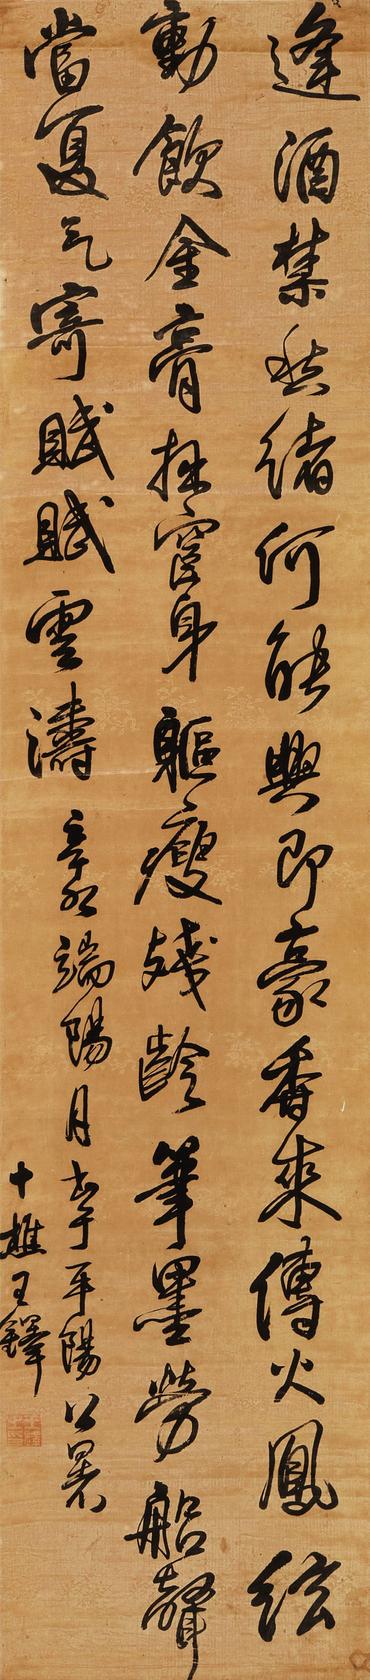 逢酒禁愁緒何能興即豪香來傳火鳳絃
動飲金膏拙宦身軀瘦殘齡筆墨勞船聲
當夏气寄賦賦雲濤
辛卯端陽月書于平陽公署
十樵王鐸